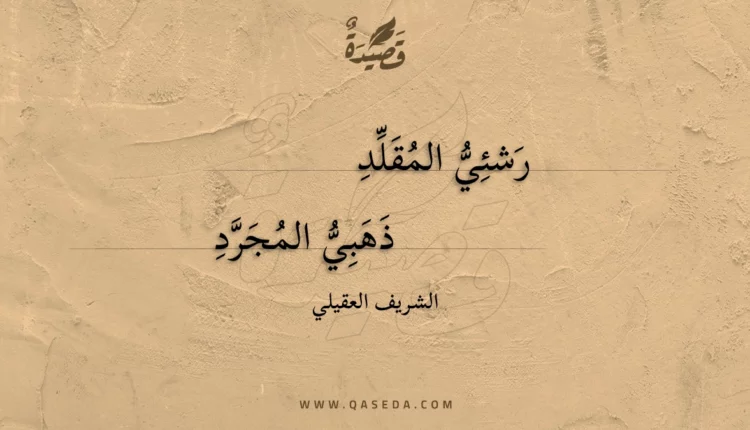 قَصِيْدَةٌ
رَشَئِيُّ المُقَلِّدِ
ذَهَبِيُّ المُجَرَّدِ
الشريف العقيلي
WWW.QASEDA.COM